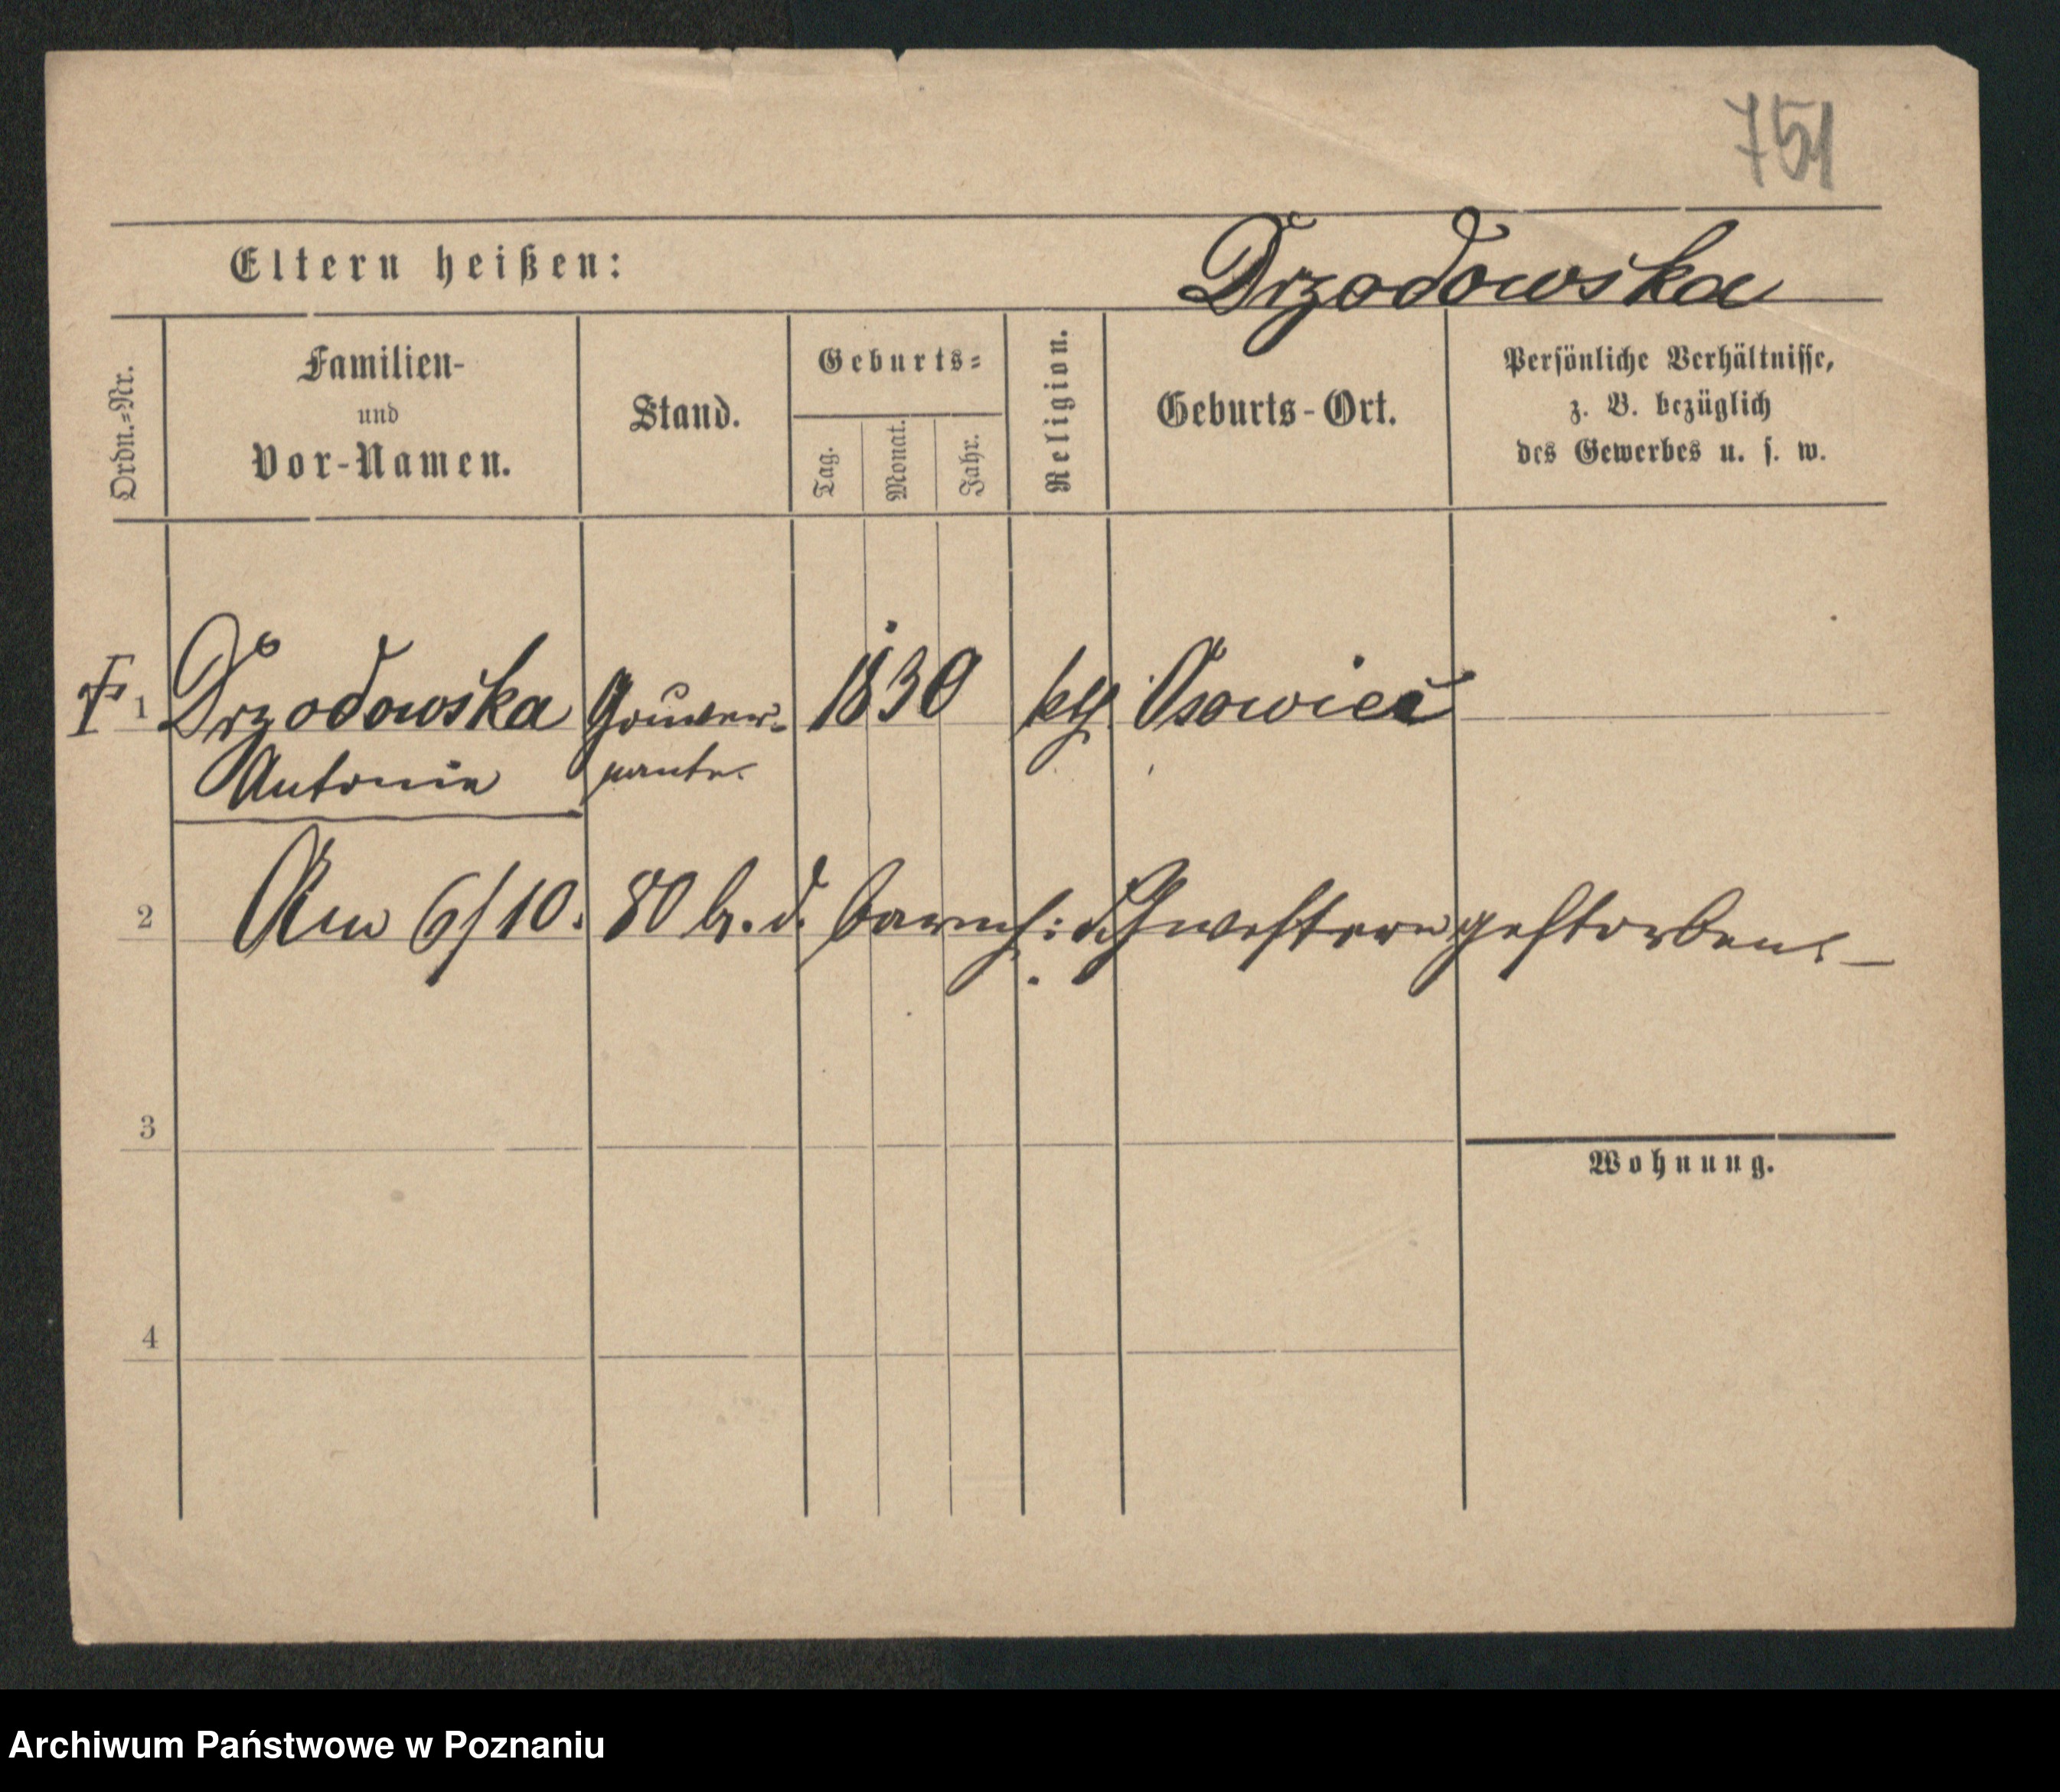 751
Eltern heißen:
Drzodowska
Ordn.=Nr.
Familien-
und
Vor-Namen.
Stand.
Geburts=
Tag.
Monat.
Jahr.
Religion.
Geburts-Ort.
Persönliche Verhältnisse,
z. B. bezüglich
des Gewerbes u. s. w.
1 Drzodowska Gouver- 1830 kth. Osowiec
Antonia nante
2 Am 6/10. 80 b. d. barmh: Schwestern gestorben. —
3
Wohnung.
4
Archiwum Państwowe w Poznaniu